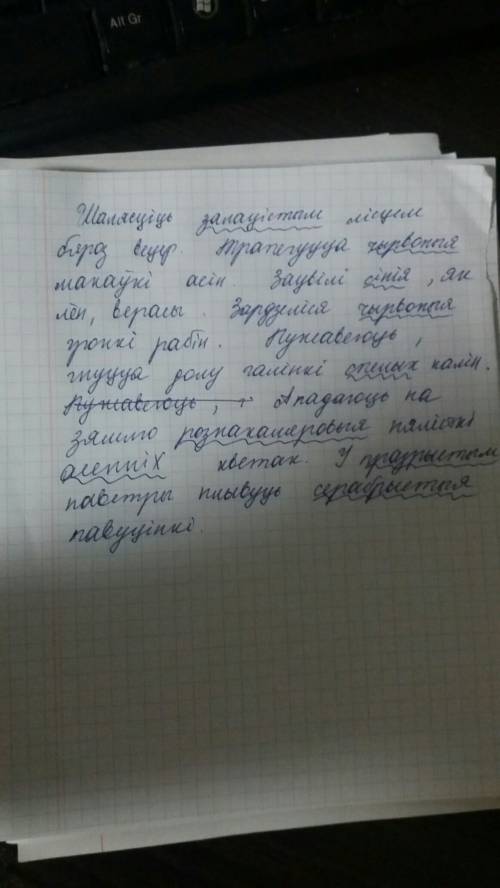 Alt Gr
Шалясціць залацістым лісцем
бяроз вецер. Трапечуцца чырвоныя
макаўкі асін. Зацвілі сінія, як
лён, верасы. Зардзеліся чырвоныя
гронкі рабін. Пунсавеюць,
гнуцца долу галінкі спелых калін.
Пунсавеюць, г Ападаюць на
зямлю рознакаляровыя пялёсткі
асенніх кветак. У празрыстым
паветры плывуць серабрыстыя
павуцінкі.